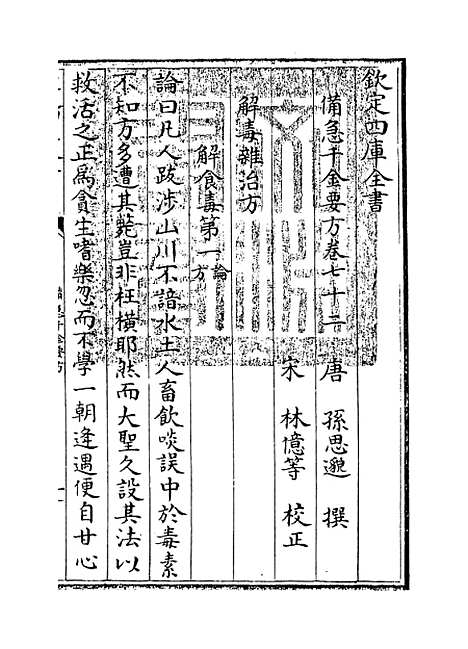 欽定四庫全書
備急千金要方卷七十二
唐 孫思邈 撰
宋 林億等 校正
解毒雜治方
解食毒第一論方
論曰凡人跋涉山川不諳水土人畜飲啖誤中於毒素
不知方多遭其斃豈非枉橫耶然而大聖久設其法以
救活之正為貪生嗜樂忽而不學一朝逢遇便自甘心